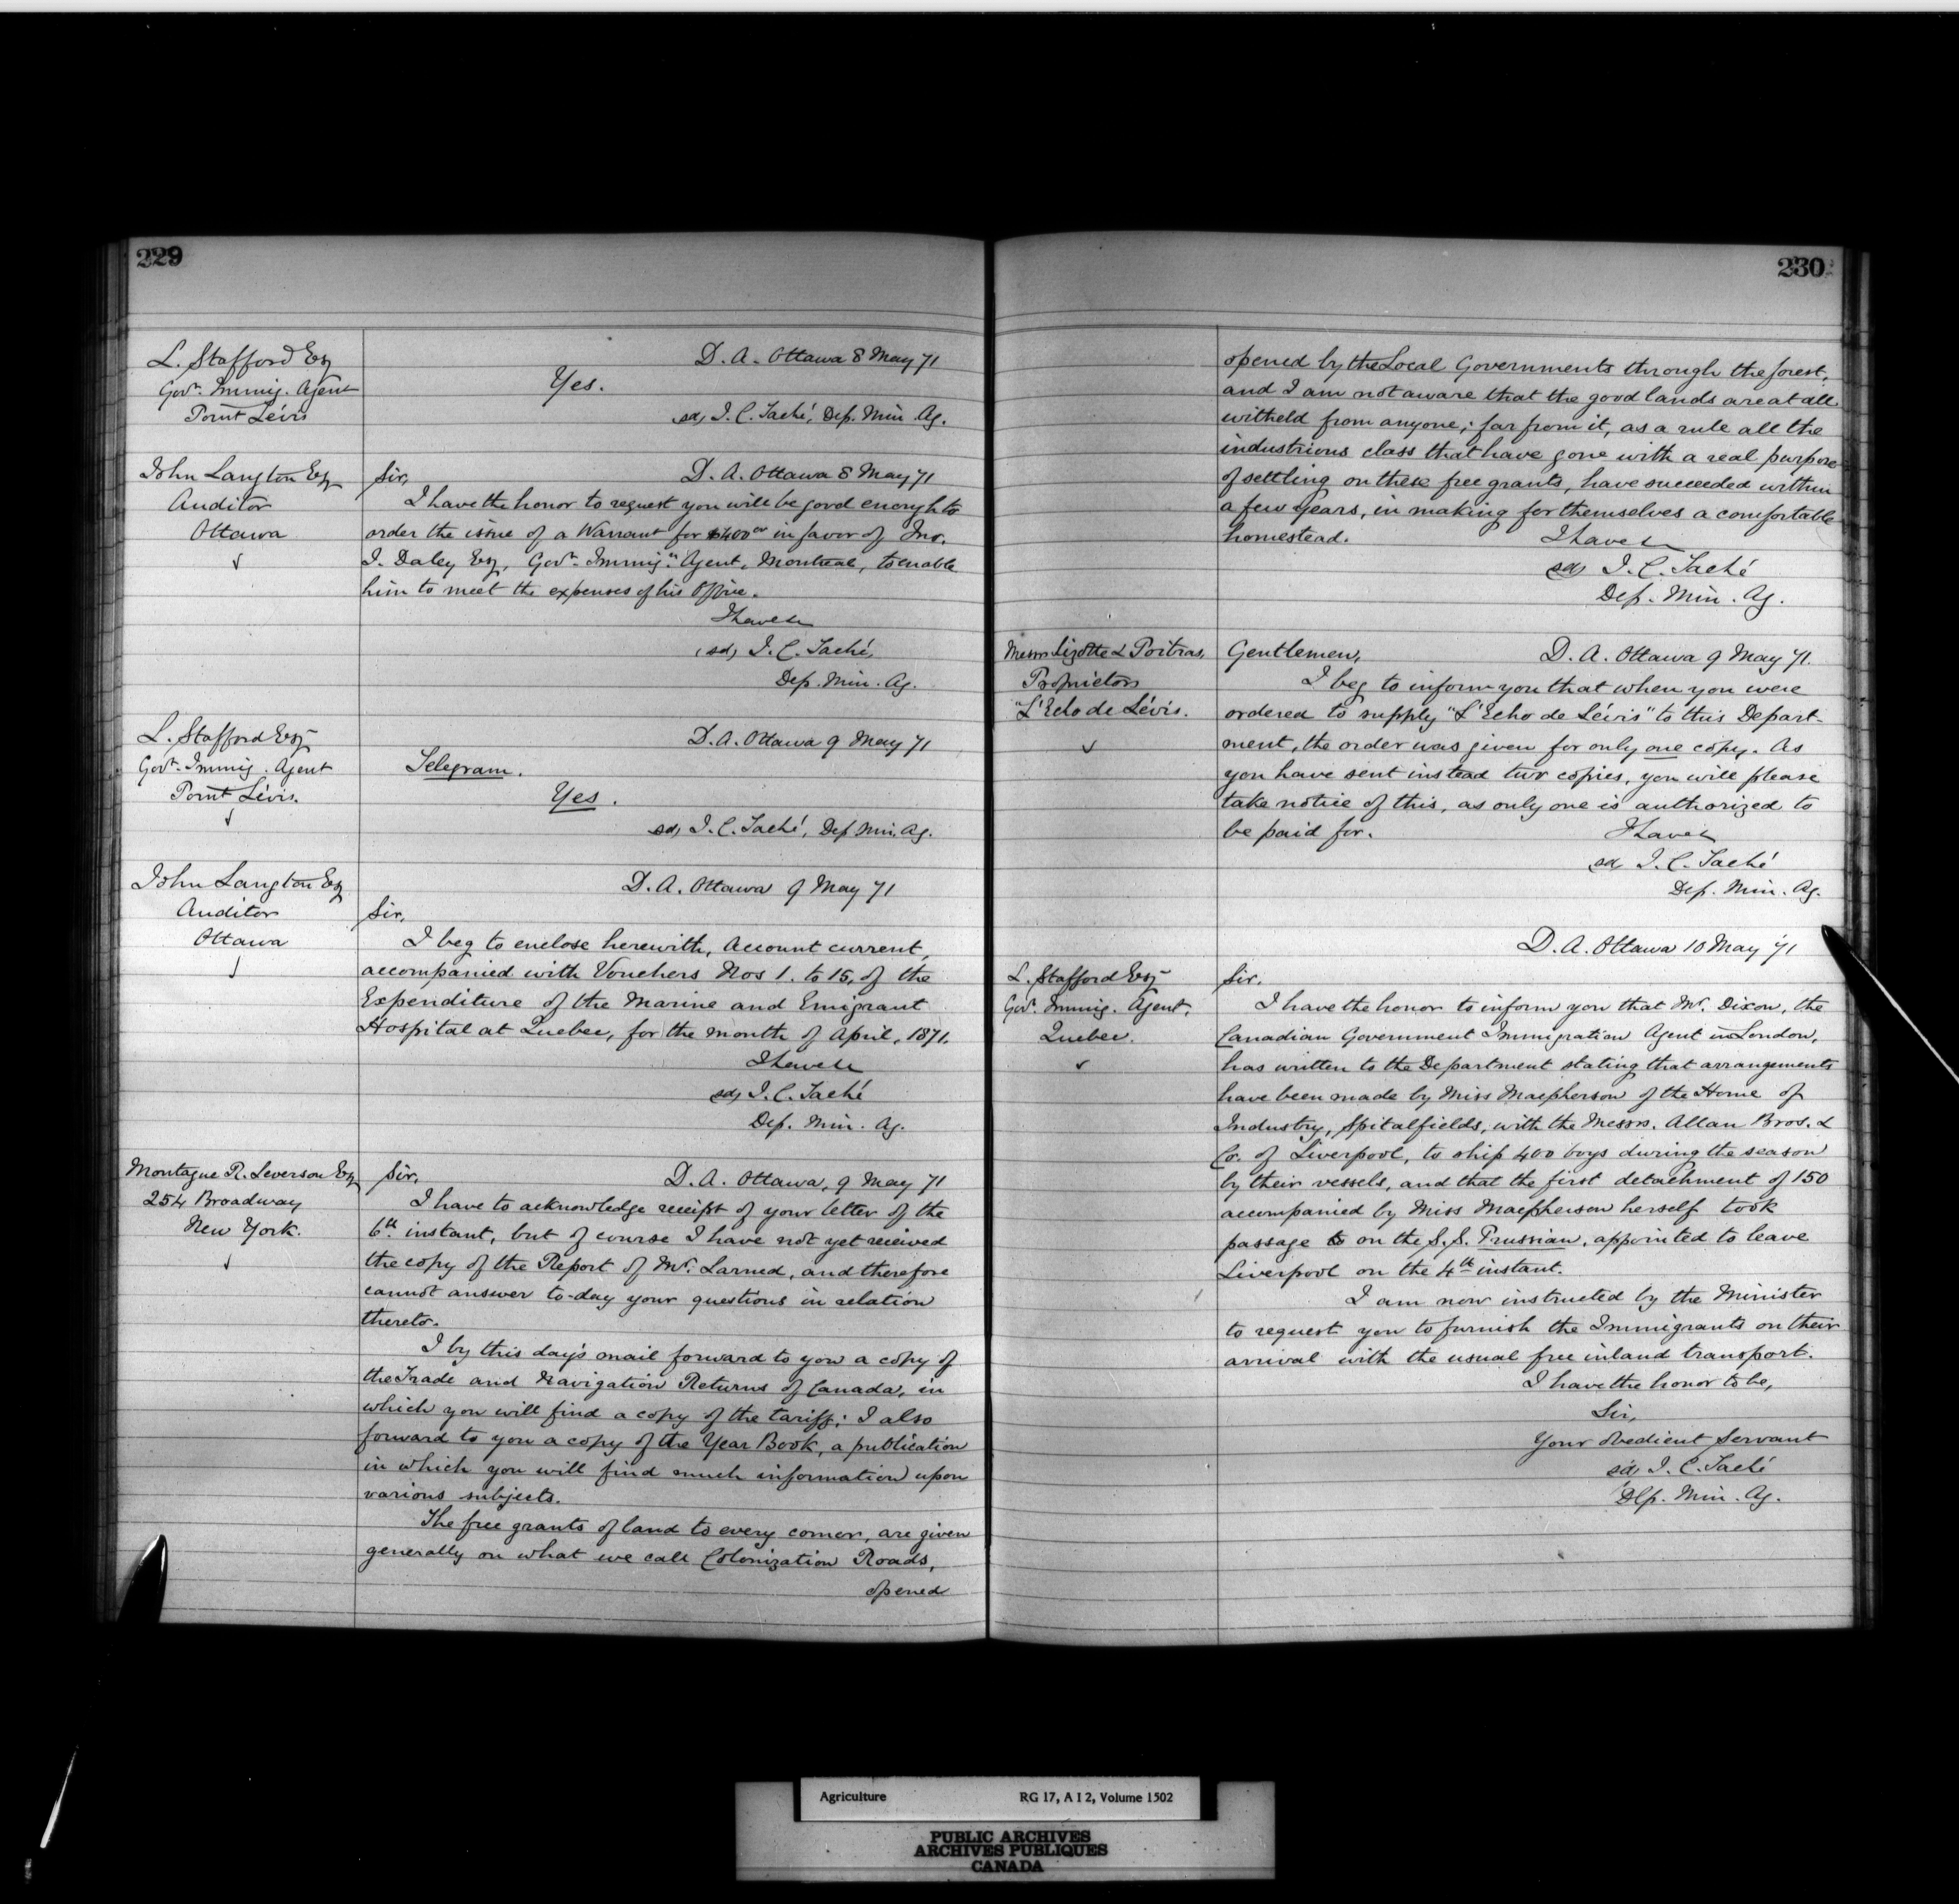 229
L. Stafford Esq
Govt. Immig. Agent
Point Lévis
D. A. Ottawa 8 May 71
Yes.
sd, J. C. Taché, Dep. Min. Ag.
John Langton Esq
Auditor
Ottawa
Sir, D. A. Ottawa 8 May 71
I have the honor to request you will be good enough to
order the issue of a Warrant for $400 00 in favor of Jno.
J. Daley Esq, Govt. Immign. Agent, Montreal, to enable
him to meet the expenses of his Office.
I have &c
(sd, J. C. Taché,
Dep. Min. Ag.
L. Stafford Esq
Govt. Immig. Agent
Point Lévis.
D. A. Ottawa 9 May 71
Telegram.
Yes.
sd, J. C. Taché, Dep Min. Ag.
John Langton Esq
Auditor
Ottawa
D. A. Ottawa 9 May 71
Sir,
I beg to enclose herewith, Account current,
accompanied with Vouchers Nos 1. to 15, of the
Expenditure of the Marine and Emigrant
Hospital at Quebec, for the month of April, 1871.
I have &c
sd, J. C. Taché
Dep. Min. Ag.
Montague R. Leverson Esq
254 Broadway
New York.
Sir, D. A. Ottawa, 9 May 71
I have to acknowledge receipt of your letter of the
6th instant, but of course I have not yet received
the copy of the Report of Mr. Larned, and therefore
cannot answer to-day your questions in relation
thereto.
I by this day's mail forward to you a copy of
the Trade and Navigation Returns of Canada, in
which you will find a copy of the tariff; I also
forward to you a copy of the Year Book, a publication
in which you will find much information upon
various subjects.
The free grants of land to every comer, are given
generally on what we call Colonization Roads,
opened
230
opened by the Local Governments through the forest,
and I am not aware that the good lands are at all
witheld from anyone; far from it, as a rule all the
industrious class that have gone with a real purpose
of settling on these free grants, have succeeded within
a few years, in making for themselves a comfortable
homestead. I have &c
sd, J. C. Taché
Dep. Min. Ag.
Messrs Lizotte & Poitras,
Proprietors
"L'Echo de Lévis.
Gentlemen, D. A. Ottawa 9 May 71.
I beg to inform you that when you were
ordered to supply "L'Echo de Lévis" to this Depart-
ment, the order was given for only one copy. As
you have sent instead two copies, you will please
take notice of this, as only one is authorized to
be paid for. I have &c
sd, J. C. Taché
Dep. Min. Ag.
D. A. Ottawa 10 May 71
L. Stafford Esq
Govt. Immig. Agent,
Quebec.
Sir,
I have the honor to inform you that Mr. Dixon, the
Canadian Government Immigration Agent in London,
has written to the Department stating that arrangements
have been made by Miss Macpherson of the Home of
Industry, Spitalfields, with the Messrs. Allan Bros. &
Co. of Liverpool, to ship 400 boys during the season
by their vessels, and that the first detachment of 150
accompanied by Miss Macpherson herself took
passage on the S.S. Prussian, appointed to leave
Liverpool on the 4th instant.
I am now instructed by the Minister
to request you to furnish the Immigrants on their
arrival with the usual free inland transport.
I have the honor to be,
Sir,
Your obedient Servant
sd, J. C. Taché
Dep. Min. Ag.
Agriculture RG 17, A I 2, Volume 1502
PUBLIC ARCHIVES
ARCHIVES PUBLIQUES
CANADA